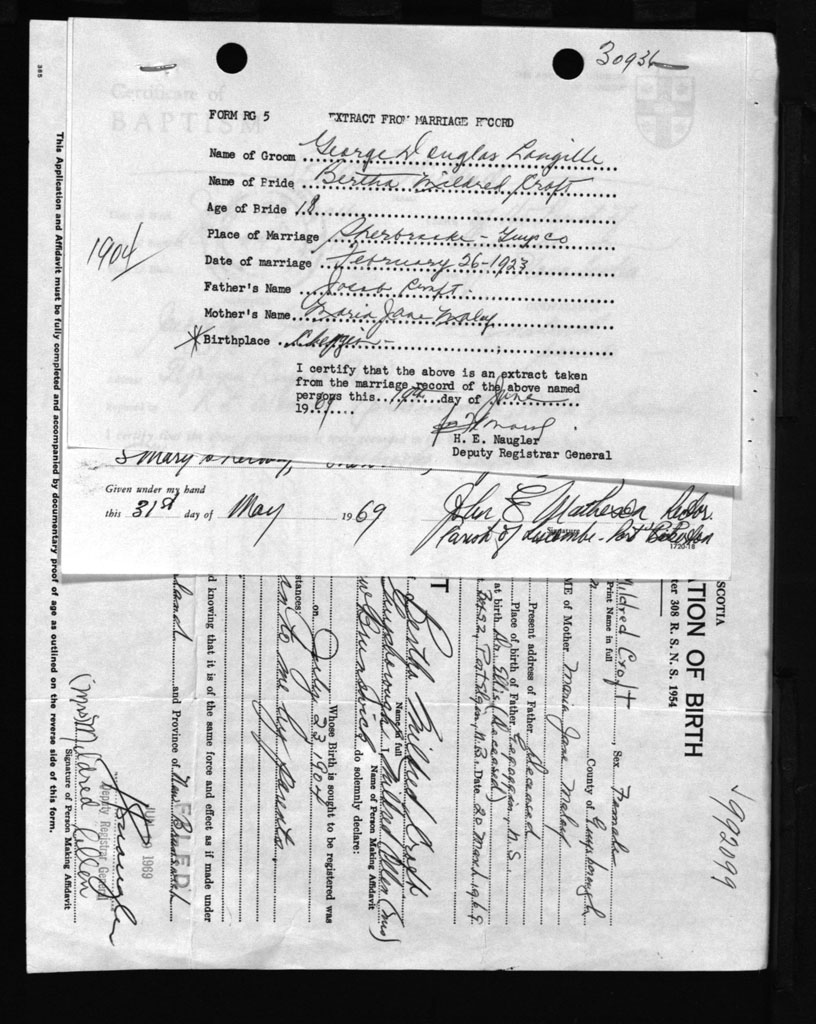 30936
FORM RG 5 EXTRACT FROM MARRIAGE RECORD
Name of Groom George Douglas Langille
Name of Bride Bertha Mildred Croft
Age of Bride 18
Place of Marriage Sherbrooke - Guysco
Date of marriage February 26-1923
1904
Father's Name Jacob Croft
Mother's Name Maria Jane
Birthplace
I certify that the above is an extract taken
from the marriage record of the above named
persons this day of June
19
H. E. Naugler
Deputy Registrar General
Certificate of
BAPTISM
Given under my hand
this 31st day of May 1969
John E Matheson
Parish of
1720-18
385
This Application and Affidavit must be fully completed and accompanied by documentary proof of age as outlined on the reverse side of this form.
SCOTIA
ATION OF BIRTH
ter 308 R. S. N. S. 1954
1992099
Mildred Croft, Sex Female
Print Name in full
County of Guysborough
ME of Mother Maria Jane
Present address of Father Deceased
Place of birth of Father, N.S.
at birth Dr. Ellis (Deceased)
N.B. Date 20 March 1969
T
Bertha Mildred Croft
Name in full
Guysborough, Mildred Allen (Mrs)
Name of Person Making Affidavit
w Brunswick do solemnly declare:
Whose Birth is sought to be registered was
on July 23, 1904
stances:
to me by parents.
d knowing that it is of the same force and effect as if made under
and Province of New Brunswick
FILED
JUN 1969
Deputy Registrar General
(Mrs) Mildred Allen
Signature of Person Making Affidavit